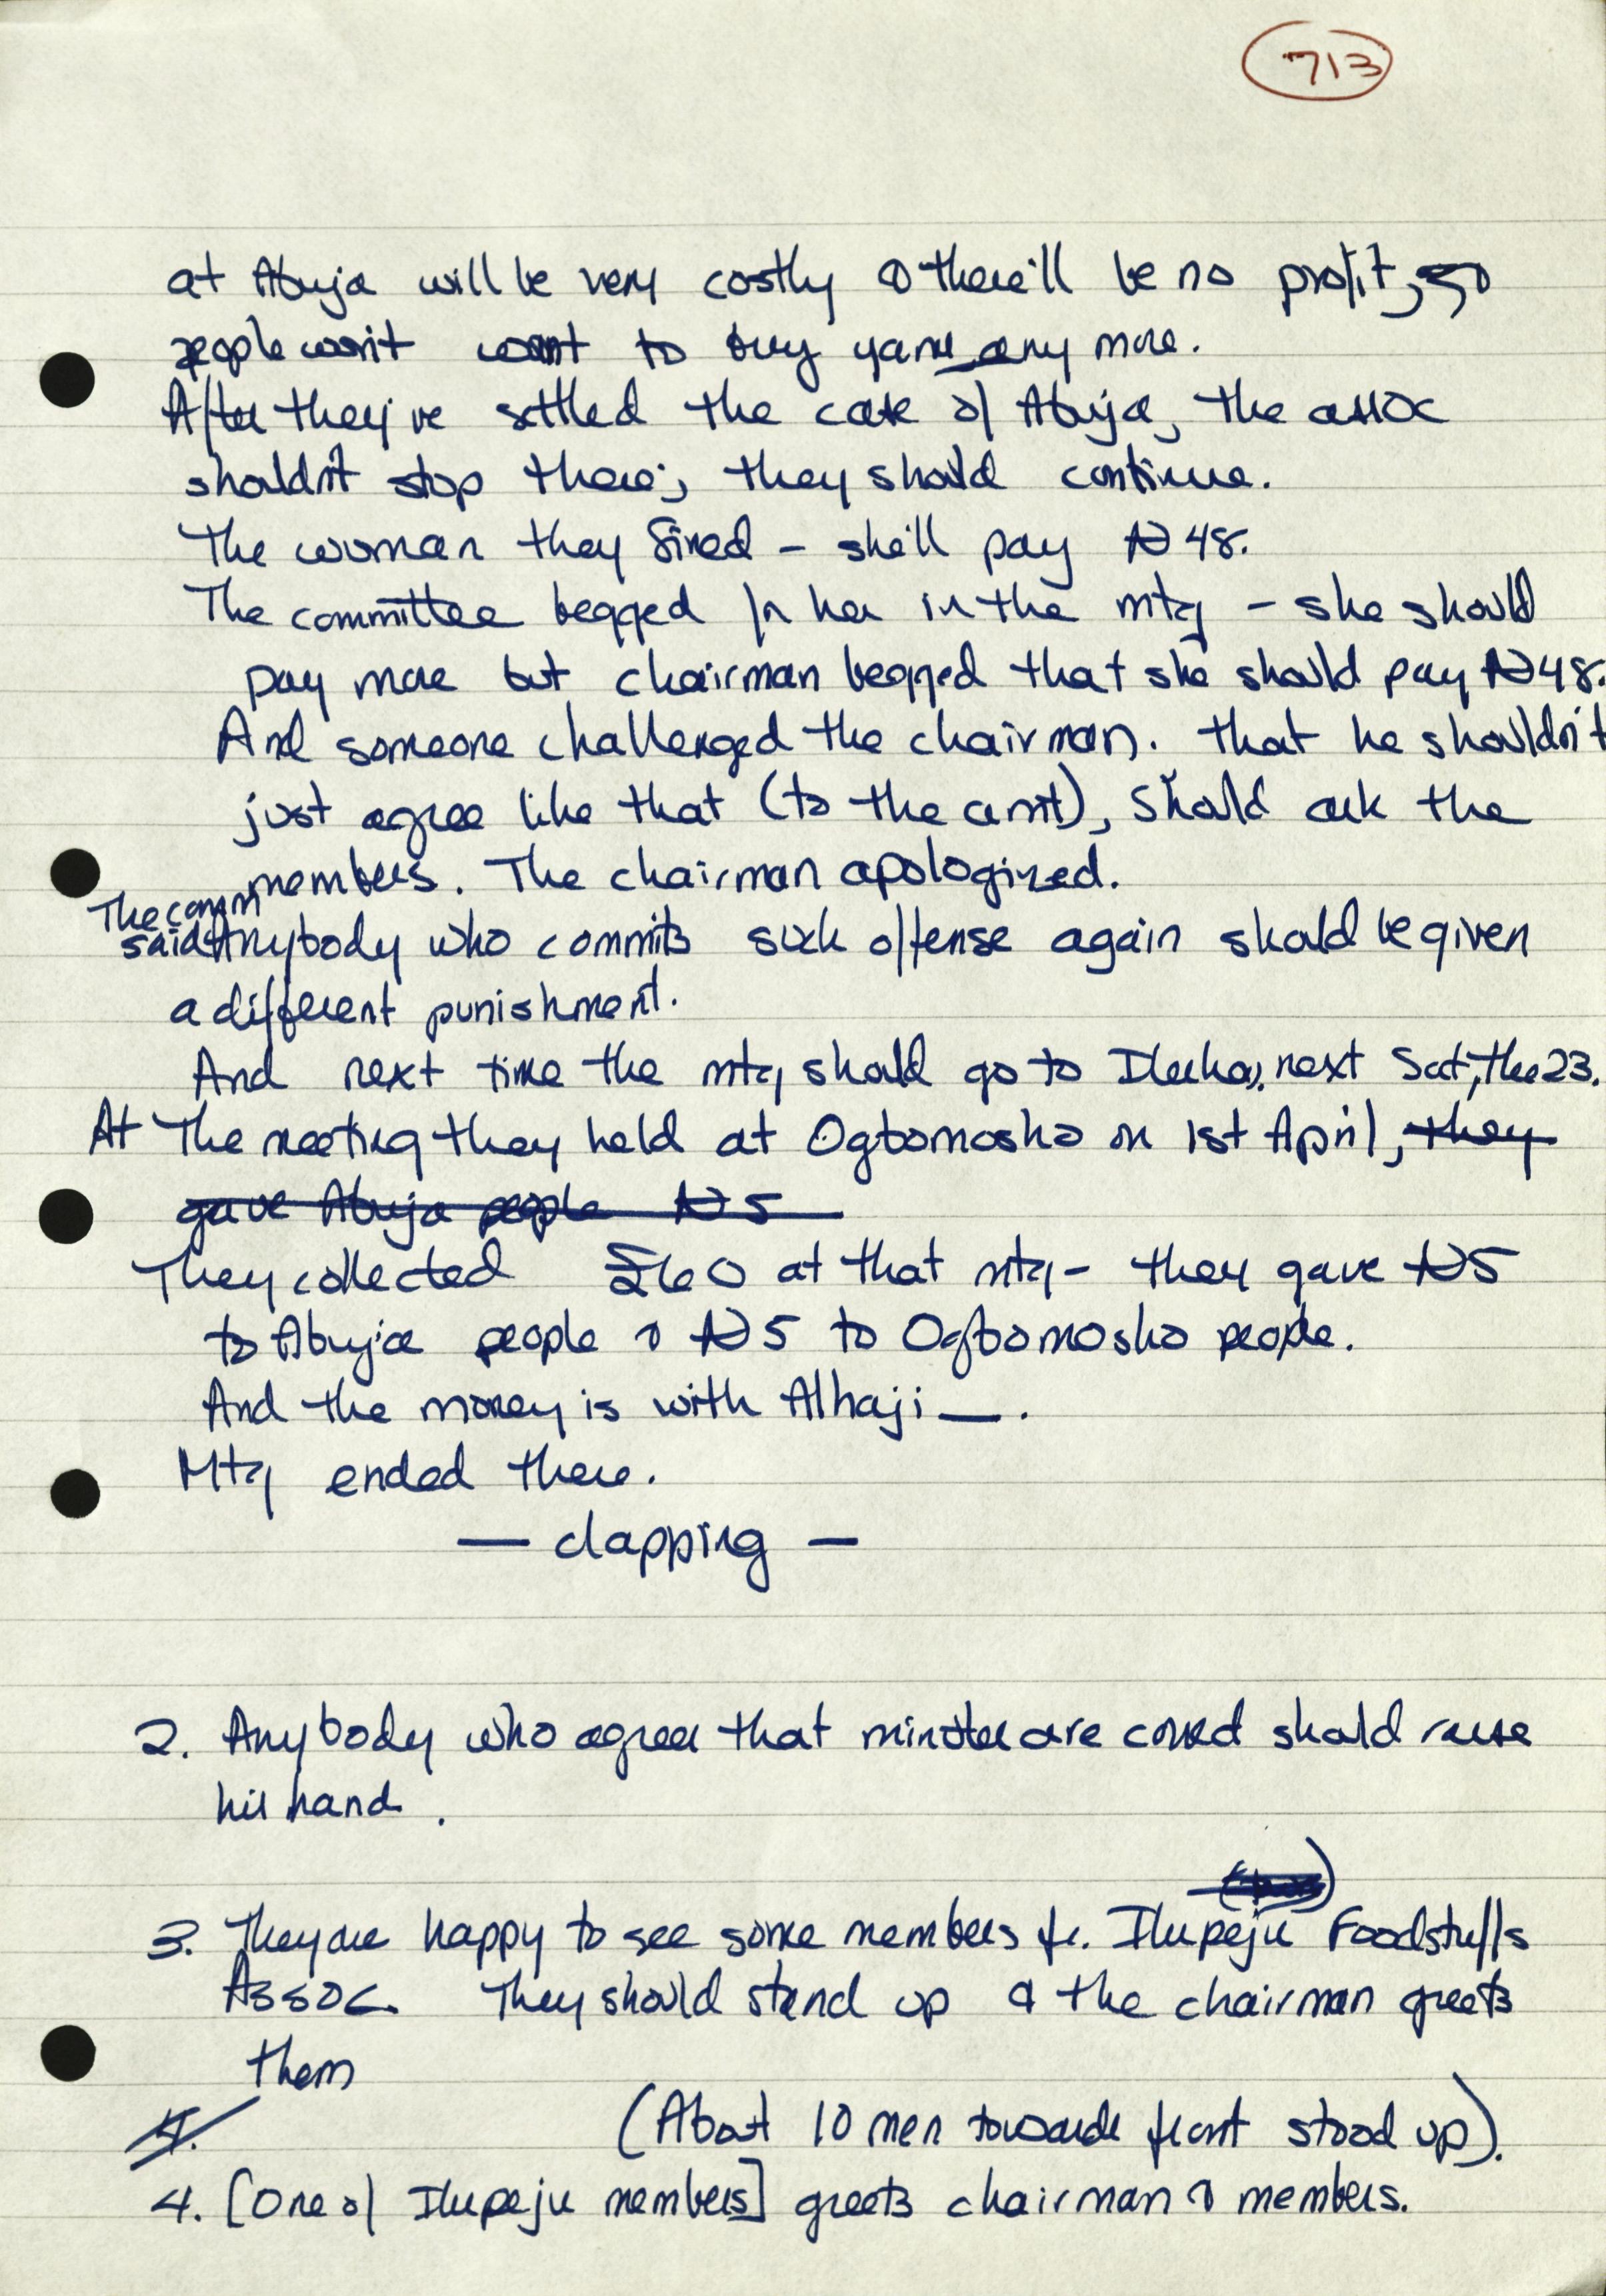 713
at Abuja will be very costly & there'll be no profit, so
people won't want to buy yams any more.
After they've settled the case of Abuja, the assoc
shouldn't stop there; they should continue.
The woman they fined – she'll pay ₦48.
The committee begged for her in the mtg – she should
pay more but chairman begged that she should pay ₦48.
And someone challenged the chairman. that he shouldn't
just agree like that (to the amt), should ask the
members. The chairman apologized.
The comm
said Anybody who commits such offense again should be given
a different punishment.
And next time the mtg should go to next Sat, the 23.
At The meeting they held at Ogbomosho on 1st April, they
gave Abuja people ₦5
They collected £60 at that mtg – they gave ₦5
to Abuja people & ₦5 to Ogbomosho people.
And the money is with Alhaji —.
Mtg ended there.
— clapping —
2. Anybody who agrees that minutes are correct should raise
his hand.
3. They are happy to see some members fr. Ilupeju Foodstuffs
Assoc. They should stand up & the chairman greets
them
4.
(About 10 men towards front stood up).
4. [One of Ilupeju members] greets chairman & members.